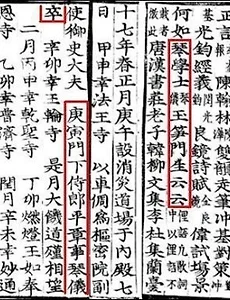 正言陳翰林
光鈞經義 良鏡詩賦 偉試場景
何如琴學士玉笋門生云云
唐漢書莊老子韓柳文集李杜集蘭臺
十七年春正月庚午設消災道場于內殿七
日 甲申幸法王寺 以車倜爲樞密院副
使御史大夫 庚寅門下侍郎平章事琴儀
卒 辛卯幸王輪寺 是月大饑道殣相望
二月丙申幸乾聖寺 丁卯燃燈王如奉
恩寺 乙卯幸普濟寺 閏月辛未幸妙通